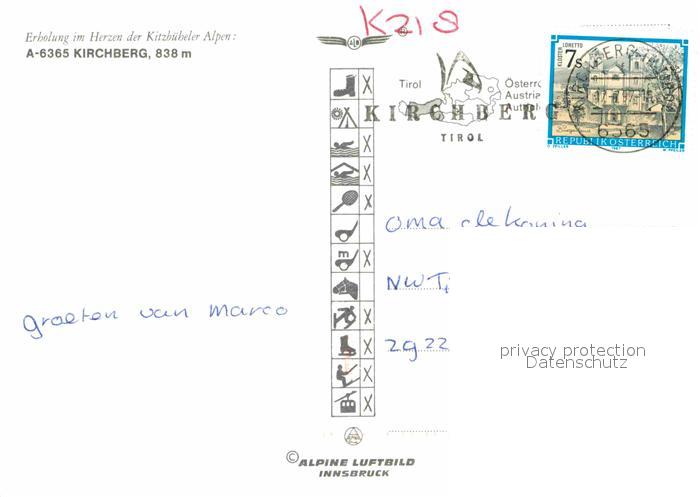 K218
Erholung im Herzen der Kitzbüheler Alpen:
A-6365 KIRCHBERG, 838 m
KLOSTER LORETTO
7s
REPUBLIK ÖSTERREICH
1987
6365
Tirol
Österr
Austria
KIRCHBERG
TIROL
oma
NWT
2922
groeten van Marco
m
privacy protection
Datenschutz
© ALPINE LUFTBILD
INNSBRUCK